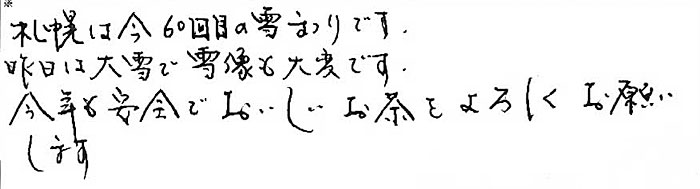 ※
札幌は今60回目の雪まつりです.
昨日は大雪で雪像も大変です.
今年も安全でおいしいお茶をよろしくお願い
します